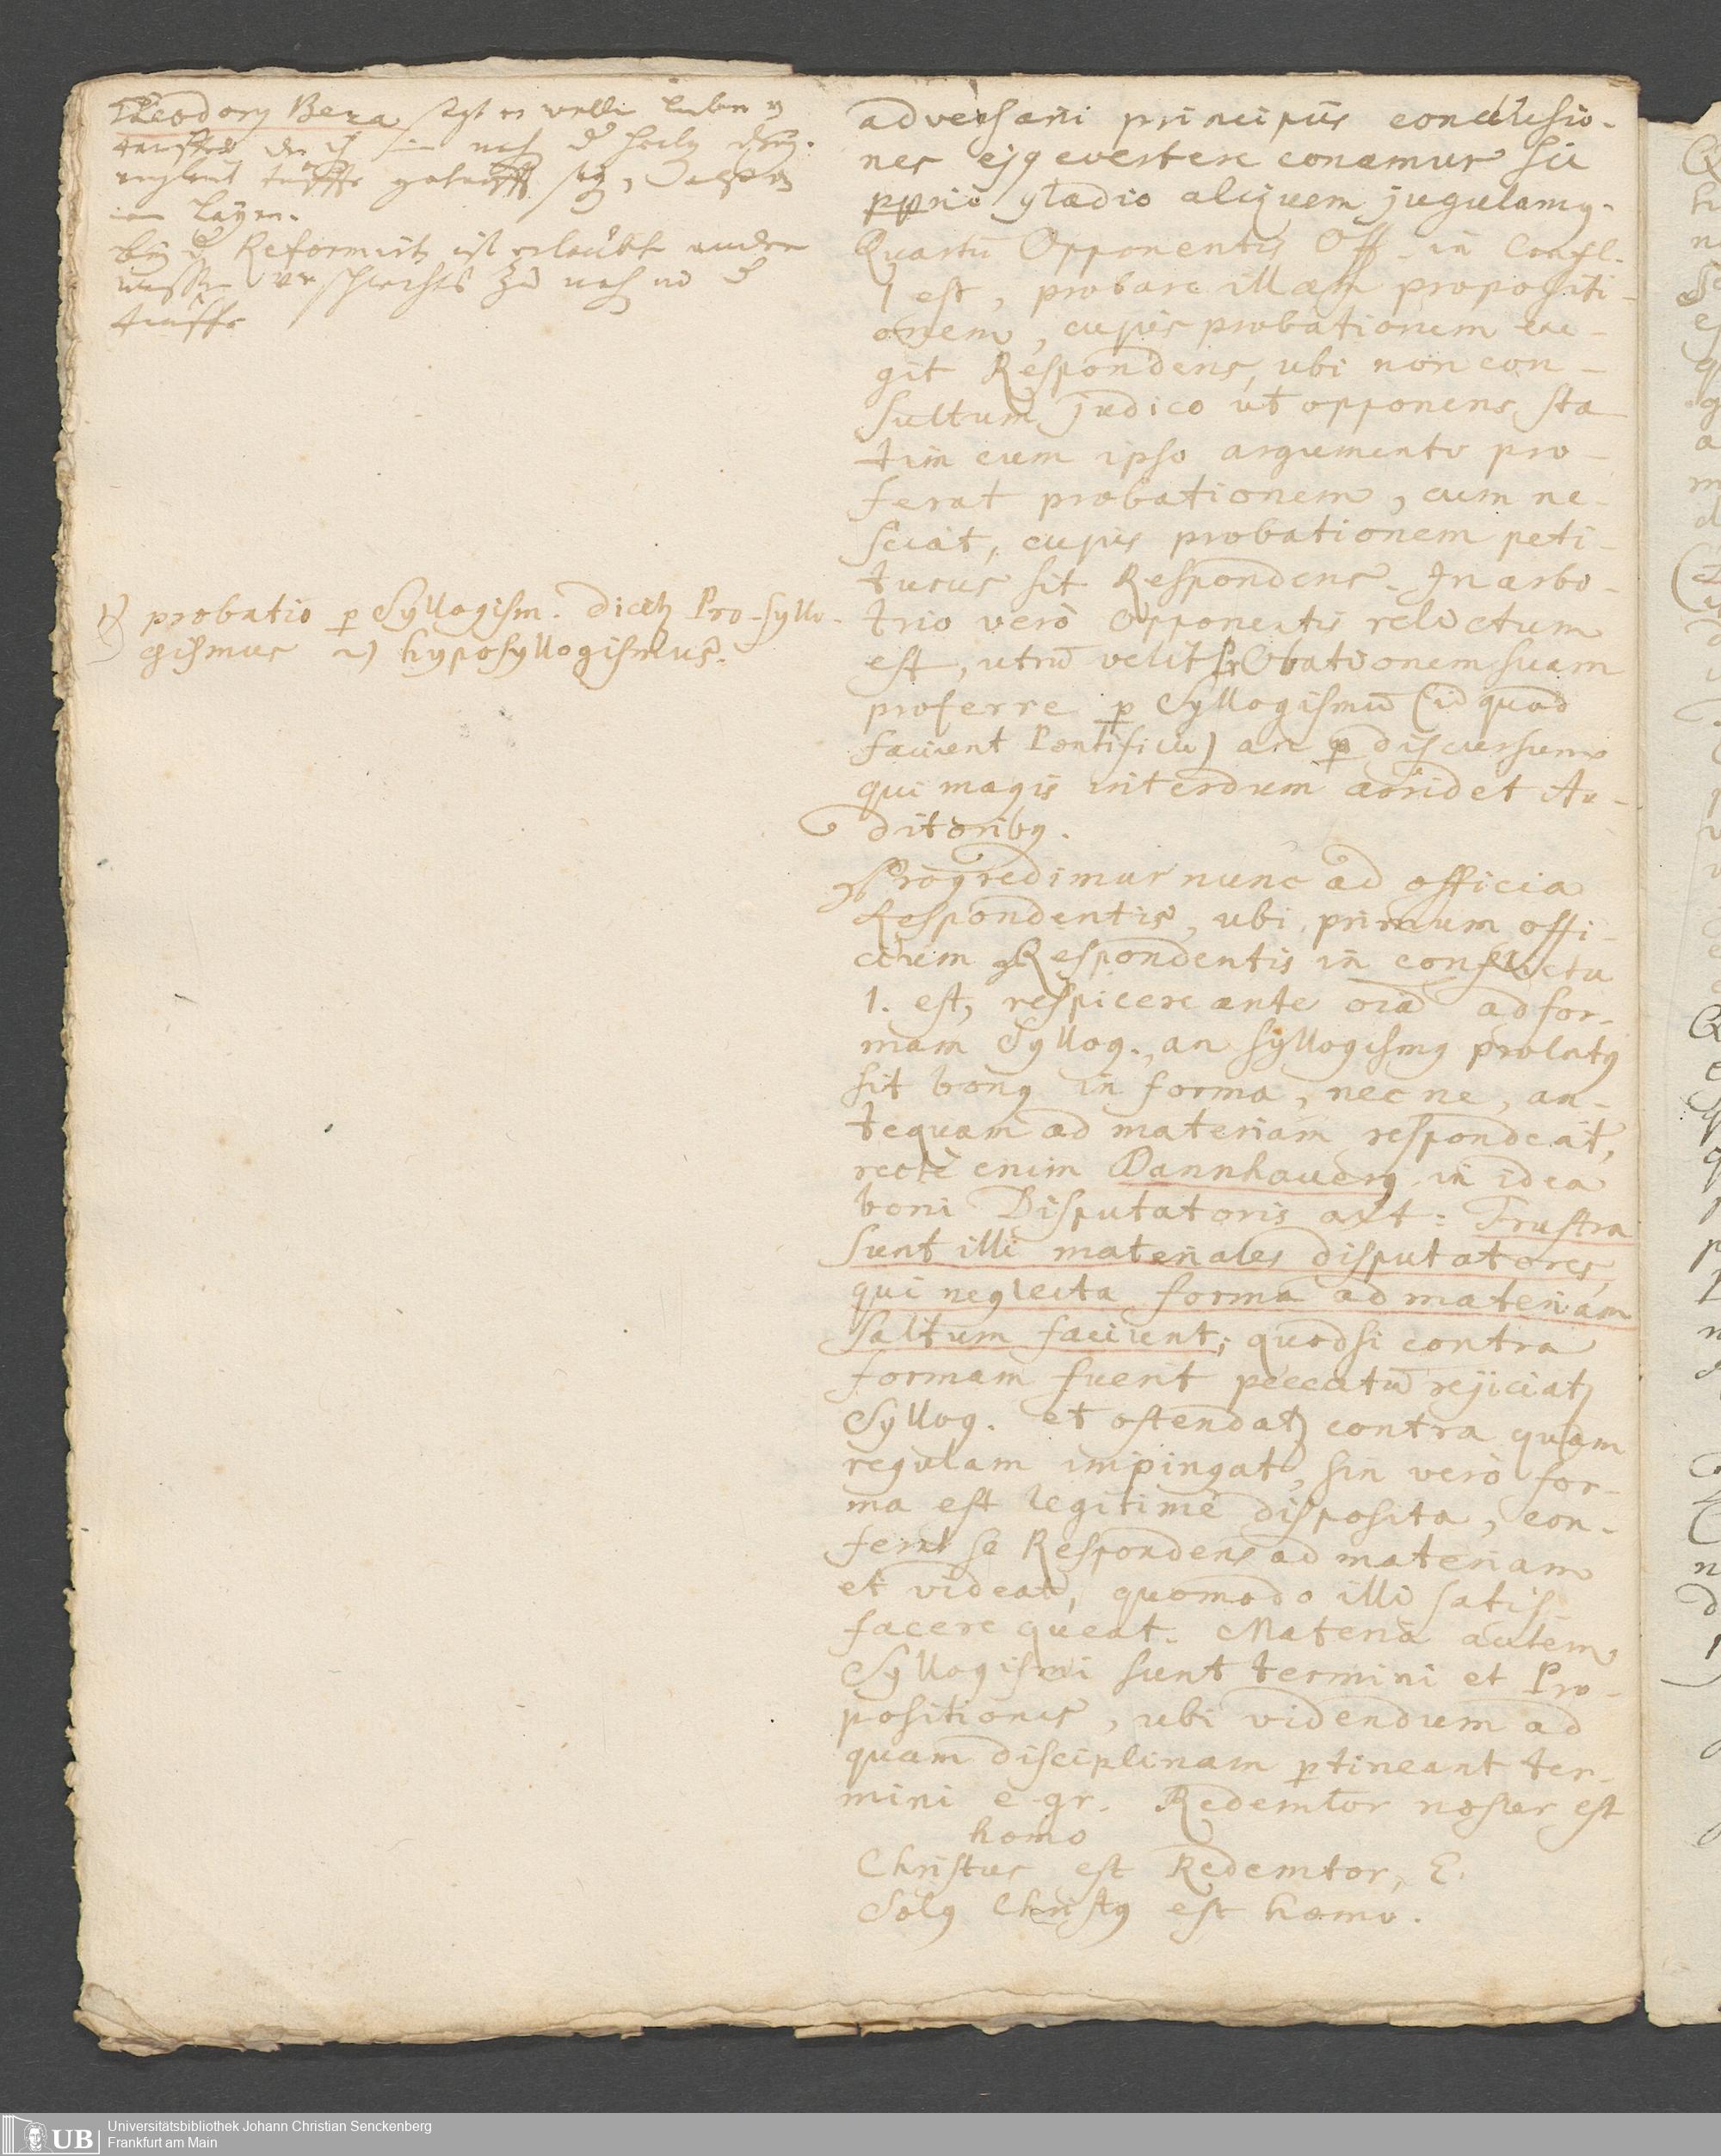 Theodorꝯ Beza sagt er wolle lieber
tauffen
tauffe
ein Layen.
bey d Reformirtẽ ist erlaubt
tauffe
probatio p Syllogism. dicitꝛ Pro-syllo-
gismus hyposyllogismus.
adversarii principiis conclusio-
nes ejꝯ evertere conamur sic
pprio gladio aliquem jugulamꝯ.
Quartũ Opponentis Off. in Confl.
1 est, probare illam propositi-
onem, cujus probationem exi-
git Respondens, ubi non con-
sultum judico ut opponens sta-
tim cum ipso argumento pro-
ferat probationem, cum ne-
sciat, cujus probationem peti-
turus sit Respondens. In arbi-
trio verò Opponentis relictum
est, utrũ velit Probationem suam
proferre p Syllogismũ (id quod
faciunt Pontificii) an p discursum
qui magis interdum arridet Au-
ditoribꝯ.
Progredimur nunc ad officia
Respondentis, ubi primum offi-
cium Respondentis in conflictu
1. est, respicere ante oĩa ad for-
mam Syllog., an syllogismꝯ prolatꝯ
sit bonꝯ in forma, nec ne, an-
tequam ad materiam respondeat,
rectè enim Dannhauerꝯ in idea
boni Disputatoris ait: Frustra
sunt illi materiales disputatores,
qui neglecta forma ad materiam
saltum faciunt; quodsi contra
formam fuerit peccatũ rejiciatꝛ
Syllog. et ostendatꝛ contra quam
regulam impingat, sin verò for-
ma est legitimè disposita, con-
ferat se Respondens ad materiam
et videat, quomodo illi satis-
facere queat. Materia autem
Syllogismi sunt termini et Pro-
positiones, ubi videndum ad
quam disciplinam ptineant ter-
mini e. gr. Redemtor noster est
homo
Christus est Redemtor, E.
Solꝯ Christꝯ est homo.
UB Universitätsbibliothek Johann Christian Senckenberg
Frankfurt am Main